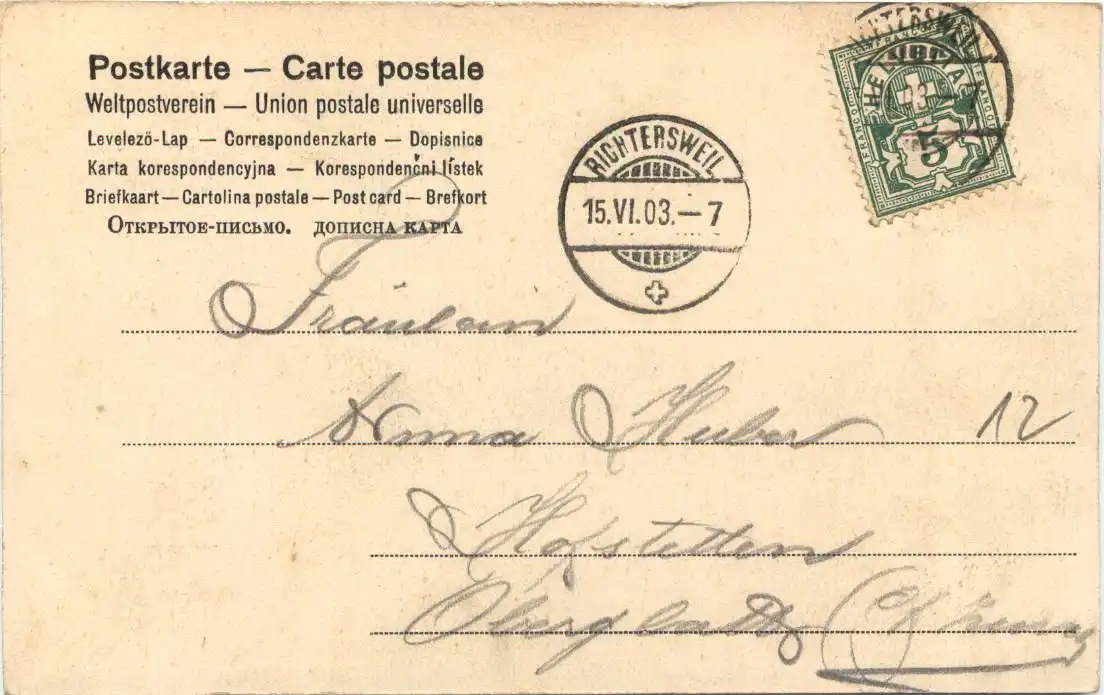 Postkarte — Carte postale
Weltpostverein — Union postale universelle
Levelező-Lap — Correspondenzkarte — Dopisnice
Karta korespondencyjna — Korespondenční lístek
Briefkaart — Cartolina postale — Post card — Brefkort
Открытое-письмо. дописна карта
RICHTERSWEIL
15.VI.03.—7
HELVETIA
FRANCO
5
Fräulein
Anna Huber
12
Hofstetten
Oberglatt